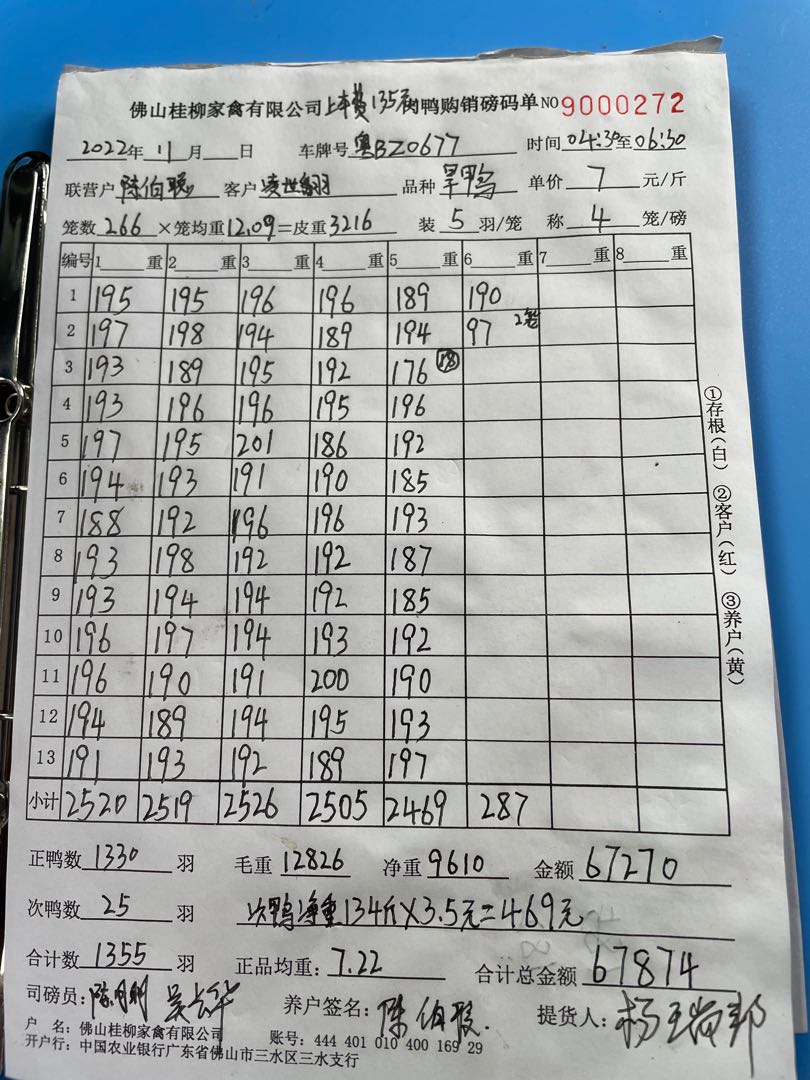 佛山桂柳家禽有限公司上车费135元肉鸭购销磅码单 NO 9000272
2022年 11月 日 车牌号 粤BZ0677 时间 04:30至06:30
联营户 陈伯聪 客户 凌世翻 品种 旱鸭 单价 7 元/斤
笼数 266 ×笼均重 12.09 =皮重 3216 装 5 羽/笼 称 4 笼/磅
编号 1 重 2 重 3 重 4 重 5 重 6 重 7 重 8 重
1 195 195 196 196 189 190
2 197 198 194 189 194 97 2笼
3 193 189 195 192 176 (18)
4 193 196 196 195 196
5 197 195 201 186 192
6 194 193 191 190 185
7 188 192 196 196 193
8 193 198 192 192 187
9 193 194 194 192 185
10 196 197 194 193 192
11 196 190 191 200 190
12 194 189 194 195 193
13 191 193 192 189 197
小计 2520 2519 2526 2505 2469 287
正鸭数 1330 羽 毛重 12826 净重 9610 金额 67270
次鸭数 25 羽 次鸭净重134斤×3.5元=469元
合计数 1355 羽 正品均重: 7.22 合计总金额 67874
司磅员: 养户签名: 陈伯聪 提货人:
户 名: 佛山桂柳家禽有限公司 账号: 444 401 010 400 169 29
开户行: 中国农业银行广东省佛山市三水区三水支行
①存根(白) ②客户(红) ③养户(黄)